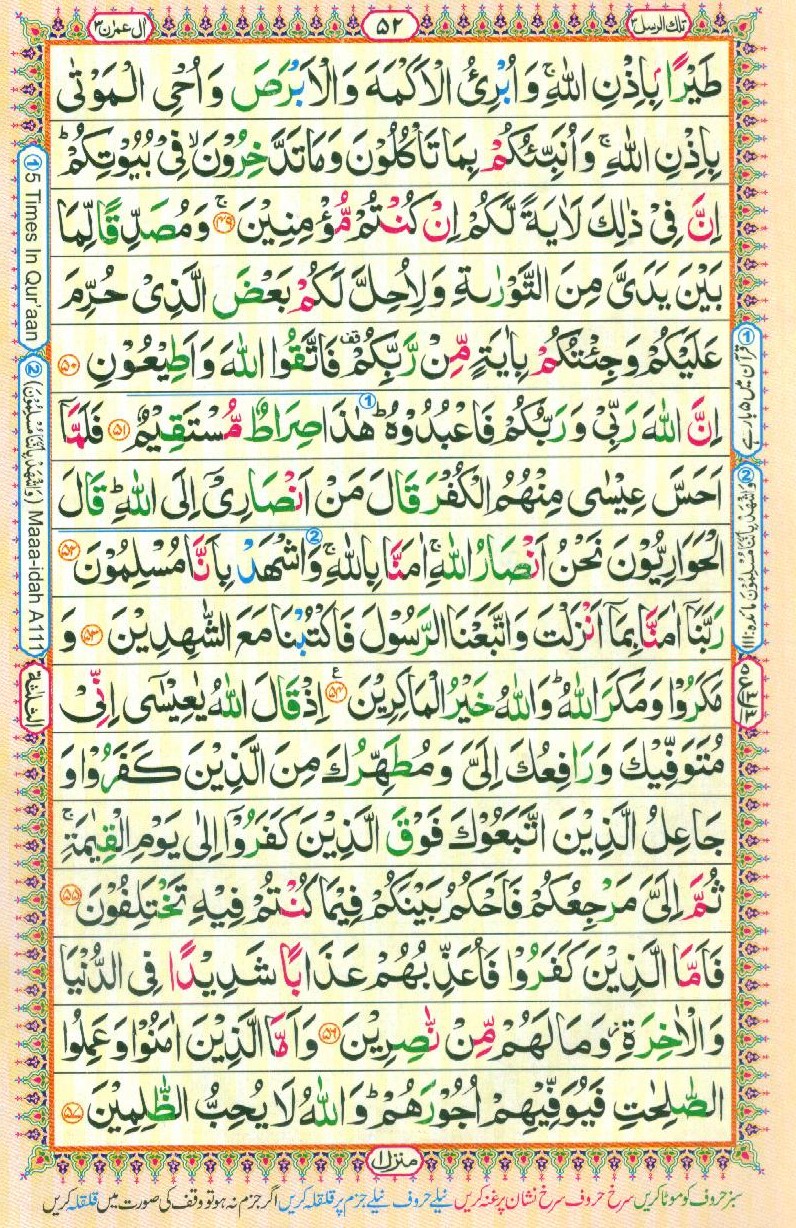 تلك الرسل ٣
٥٢
ال عمرٰن ٣
طَيْرًۢا بِاِذْنِ اللّٰهِ ۚ وَاُبْرِئُ الْاَكْمَهَ وَالْاَبْرَصَ وَاُحْيِ الْمَوْتٰى
بِاِذْنِ اللّٰهِ ۚ وَاُنَبِّئُكُمْ بِمَا تَاْكُلُوْنَ وَمَا تَدَّخِرُوْنَ ۙ فِيْ بُيُوْتِكُمْ ؕ
اِنَّ فِيْ ذٰلِكَ لَاٰيَةً لَّكُمْ اِنْ كُنْتُمْ مُّؤْمِنِيْنَ ۚ ﴿٤٩﴾ وَمُصَدِّقًا لِّمَا
بَيْنَ يَدَيَّ مِنَ التَّوْرٰىةِ وَلِاُحِلَّ لَكُمْ بَعْضَ الَّذِيْ حُرِّمَ
عَلَيْكُمْ وَجِئْتُكُمْ بِاٰيَةٍ مِّنْ رَّبِّكُمْ قف فَاتَّقُوا اللّٰهَ وَاَطِيْعُوْنِ ﴿٥٠﴾
اِنَّ اللّٰهَ رَبِّيْ وَرَبُّكُمْ فَاعْبُدُوْهُ ؕ هٰذَا صِرَاطٌ مُّسْتَقِيْمٌ ﴿٥١﴾ فَلَمَّاۤ
اَحَسَّ عِيْسٰى مِنْهُمُ الْكُفْرَ قَالَ مَنْ اَنْصَارِيْۤ اِلَى اللّٰهِ ؕ قَالَ
الْحَوَارِيُّوْنَ نَحْنُ اَنْصَارُ اللّٰهِ ۚ اٰمَنَّا بِاللّٰهِ ۚ وَاشْهَدْ بِاَنَّا مُسْلِمُوْنَ ﴿٥٢﴾
رَبَّنَاۤ اٰمَنَّا بِمَاۤ اَنْزَلْتَ وَاتَّبَعْنَا الرَّسُوْلَ فَاكْتُبْنَا مَعَ الشّٰهِدِيْنَ ﴿٥٣﴾ وَ
مَكَرُوْا وَمَكَرَ اللّٰهُ ؕ وَاللّٰهُ خَيْرُ الْمَاكِرِيْنَ ﴿٥٤﴾ ع اِذْ قَالَ اللّٰهُ يٰعِيْسٰۤى اِنِّيْ
مُتَوَفِّيْكَ وَرَافِعُكَ اِلَيَّ وَمُطَهِّرُكَ مِنَ الَّذِيْنَ كَفَرُوْا وَ
جَاعِلُ الَّذِيْنَ اتَّبَعُوْكَ فَوْقَ الَّذِيْنَ كَفَرُوْۤا اِلٰى يَوْمِ الْقِيٰمَةِ ۚ
ثُمَّ اِلَيَّ مَرْجِعُكُمْ فَاَحْكُمُ بَيْنَكُمْ فِيْمَا كُنْتُمْ فِيْهِ تَخْتَلِفُوْنَ ﴿٥٥﴾
فَاَمَّا الَّذِيْنَ كَفَرُوْا فَاُعَذِّبُهُمْ عَذَابًا شَدِيْدًا فِي الدُّنْيَا
وَالْاٰخِرَةِ ؗ وَمَا لَهُمْ مِّنْ نّٰصِرِيْنَ ﴿٥٦﴾ وَاَمَّا الَّذِيْنَ اٰمَنُوْا وَعَمِلُوا
الصّٰلِحٰتِ فَيُوَفِّيْهِمْ اُجُوْرَهُمْ ؕ وَاللّٰهُ لَا يُحِبُّ الظّٰلِمِيْنَ ﴿٥٧﴾
① قرآن میں ۵ بار ہے
② وَاشْهَدْ بِاَنَّنَا مُسْلِمُوْنَ مائده: ١١١
① 5 Times In Qur'aan
② (وَاشْهَدْ بِاَنَّنَا مُسْلِمُوْنَ) Maaa-idah A111
الثلٰثة
منزل ١
سبز حروف کو موٹا کریں سرخ حروف سرخ نشان پر غنہ کریں نیلے حروف نیلے جزم پر قلقلہ کریں اگر جزم نہ ہو تو وقف کی صورت میں قلقلہ کریں